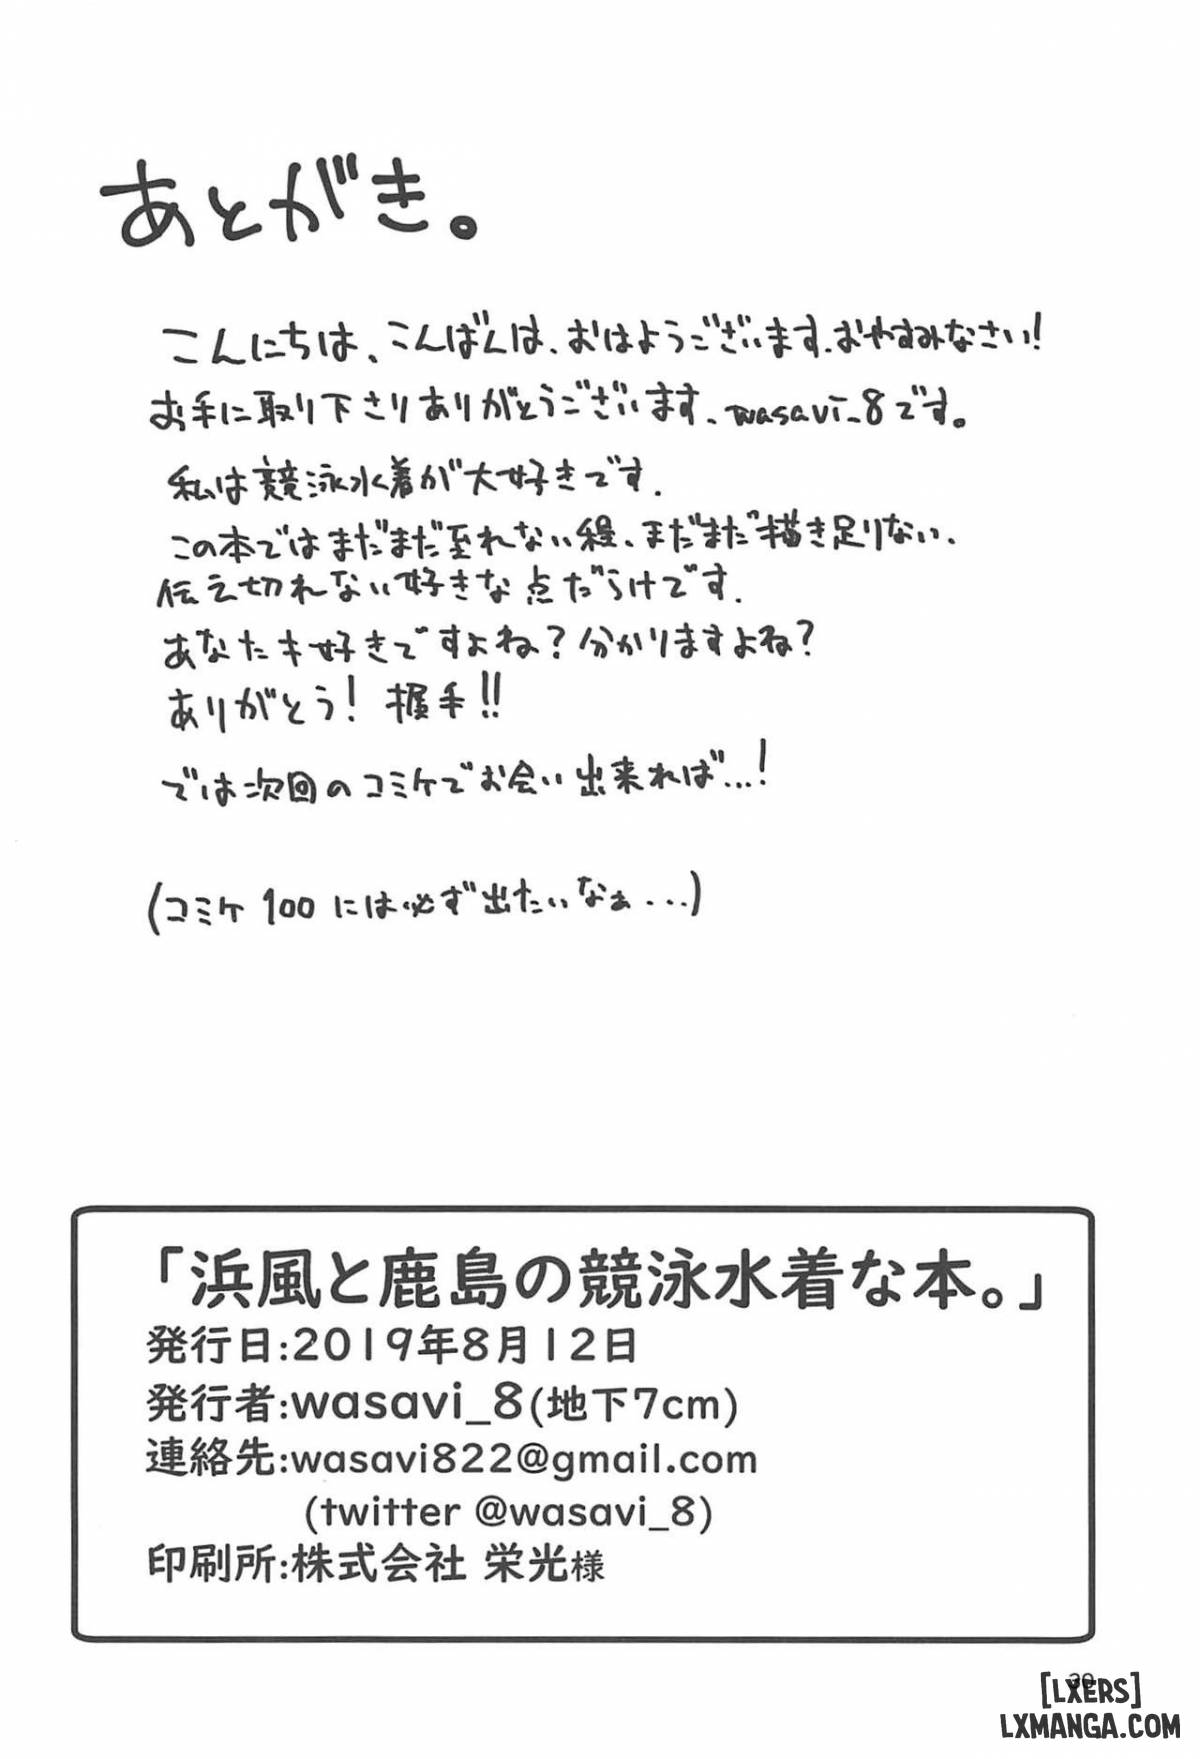 あとがき。
こんにちは、こんばんは、おはようございます、おやすみなさい!
お手に取り下さりありがとうございます、wasavi_8です。
私は競泳水着が大好きです。
この本ではまだまだ至れない程、まだまだ描き足りない、
伝え切れない好きな点だらけです。
あなたも好きですよね?分かりますよね?
ありがとう!握手!!
では次回のコミケでお会い出来れば…!
(コミケ100には必ず出たいなぁ...)
「浜風と鹿島の競泳水着な本。」
発行日:2019年8月12日
発行者:wasavi_8(地下7cm)
連絡先:wasavi822@gmail.com
(twitter @wasavi_8)
印刷所:株式会社 栄光様
30
[LXERS]
LXMANGA.COM